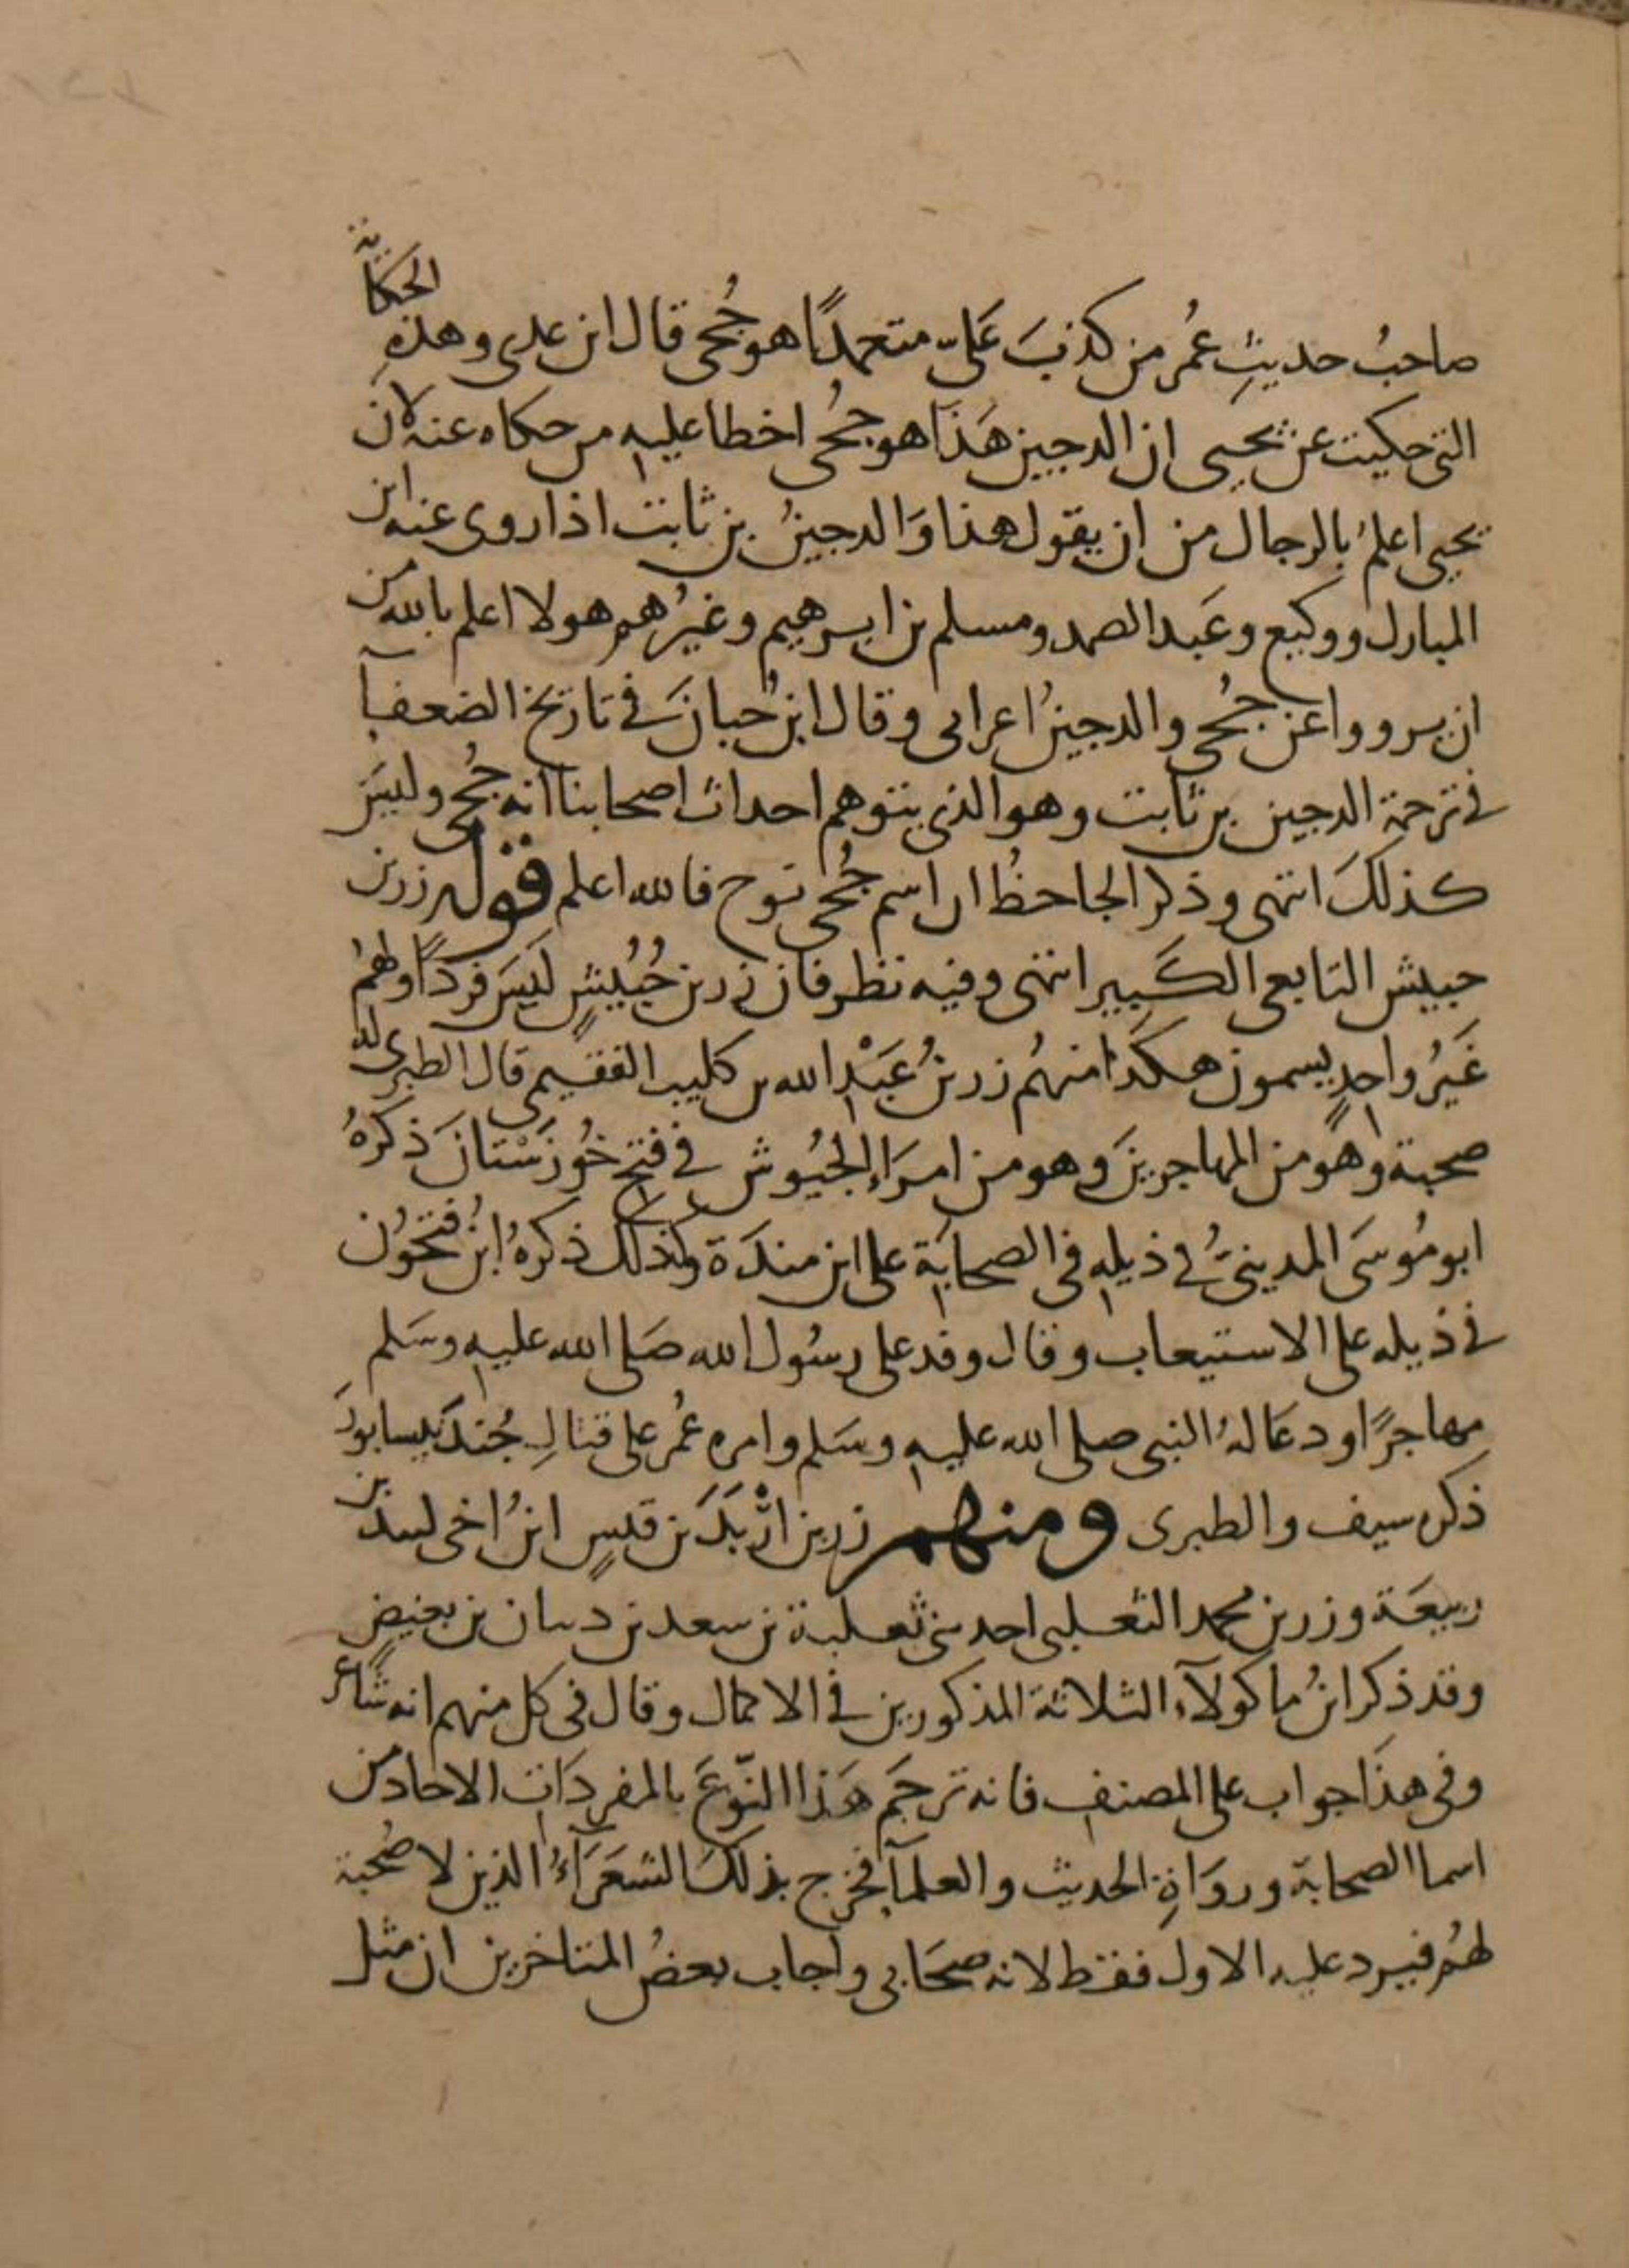 صاحبُ حديثِ عُمر من كذبَ عَليّ متعمدًا هو جُحى قال ابن عدى وهذهِ الحكاية
التى حكيت عن يحيى ان الدجين هَذا هو جُحى اخطا عليه من حكاه عنه لان
يحيى اعلمُ بالرجال من ان يقول هذا وَالدجينُ بن ثابت اذا روى عنه ابن
المبارك ووكيع وعَبد الصمد ومسلم بن ابرهيم وغيرُهم هولا اعلم بالله من
ان يرووا عن جُحى والدجينُ اعرابى وقال ابنُ حبانَ فى تاريخ الضعفآ
فى ترجمة الدجين بن ثابت وهو الذى يتوهم احداث اصحابنا انه جُحى وليسَ
كذلكَ انتهى وذكر الجاحظُ ان اسم جُحى نوح فالله اعلم قوله زر بن
حبيش التابعى الكَبير انتهى وفيه نظر فان زر بن حُبُيشٍ ليسَ فردًا ولهمُ
غَيرُ واحدٍ يسمون هكذا منهُم زر بنُ عَبْدِ الله بن كليب الفقيمى قال الطبرى له
صحبة وهو من المهاجرينَ وهو من امرَاءِ الجيُوش فى فتح خُوزسْتانَ ذكرهُ
ابو مُوسَى المدينىُّ فى ذيله فى الصحابَة على ابن مندَة وكذلك ذكرهُ ابنُ فتحُون
فى ذيله على الاستيعاب وقال وفد على رسُول الله صَلى الله عليه وسَلم
مهاجرًا ودعَا لهُ النبى صلى الله عليه وسَلم وامره عُمر على قتالِ جُندَيسابورَ
ذكره سيف والطبرى ومنهم زر بن ارْبَدَ بن قيسٍ ابنُ اخى لبيد بن
ربيعَة وزر بن محمد الثعلبى احد بنى ثعلبة بن سعد بن دبيان بن بغيضٍ
وقد ذكر ابنُ ماكولآء الثلاثة المذكورين فى الاكمال وقال فى كل منهم انه شاعر
وفى هذا جواب على المصنف فانه ترجَم هَذا النّوعَ بالمفردَات الاحاد من
اسما الصحابة وروَاةِ الحديث والعلمآ فخرج بذلكَ الشعَرَآءُ الذين لا صُحبة
لهُم فيرد عليه الاول فقط لانه صحَابى واجاب بعضُ المتاخرين ان مثل